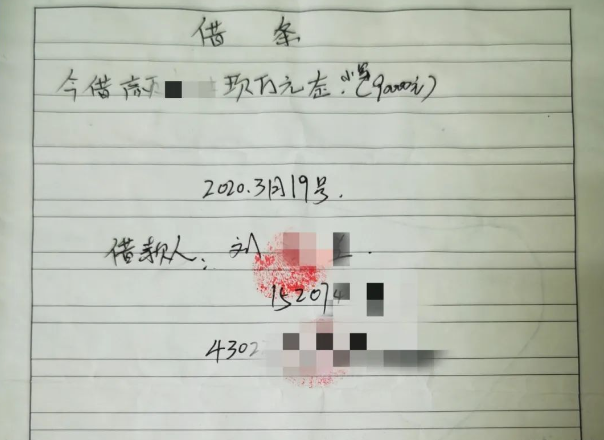 借条
今借高 玖万元 小写(90000元)
2020.3月19号.
借款人: 刘
152074
4302